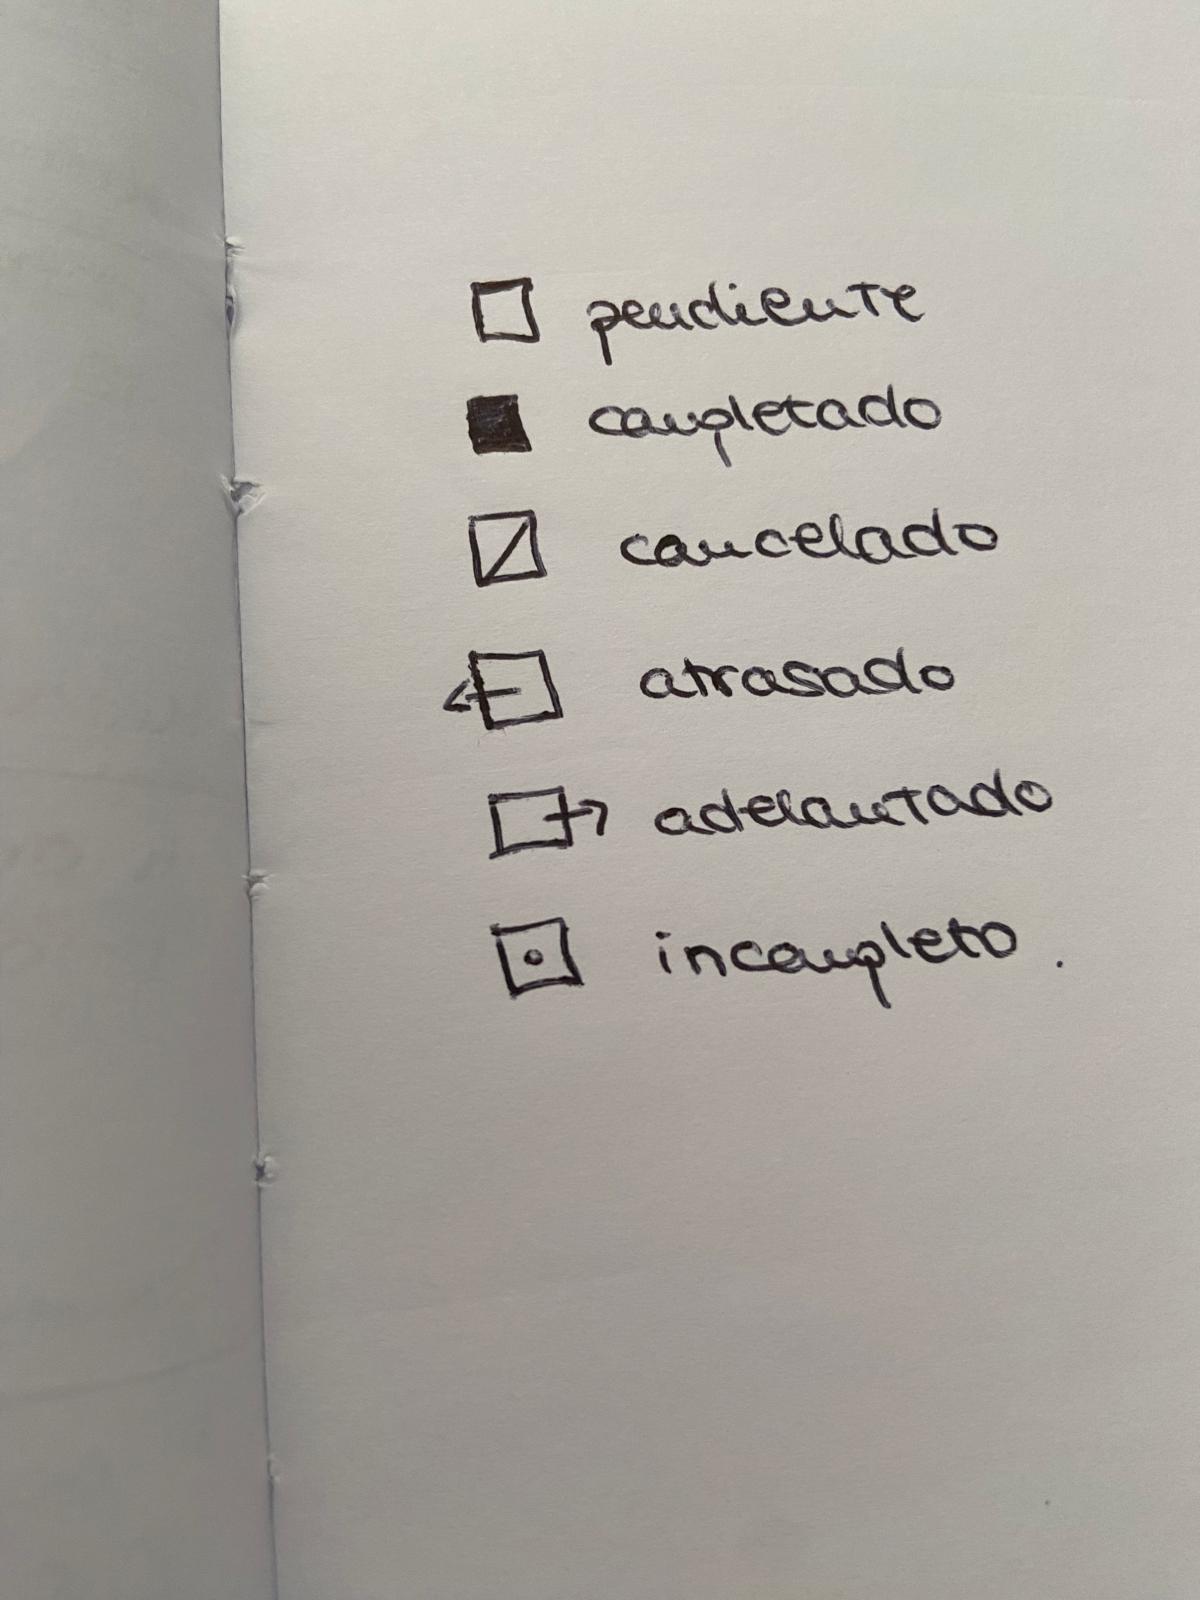 pendiente
completado
cancelado
atrasado
adelantado
incompleto.